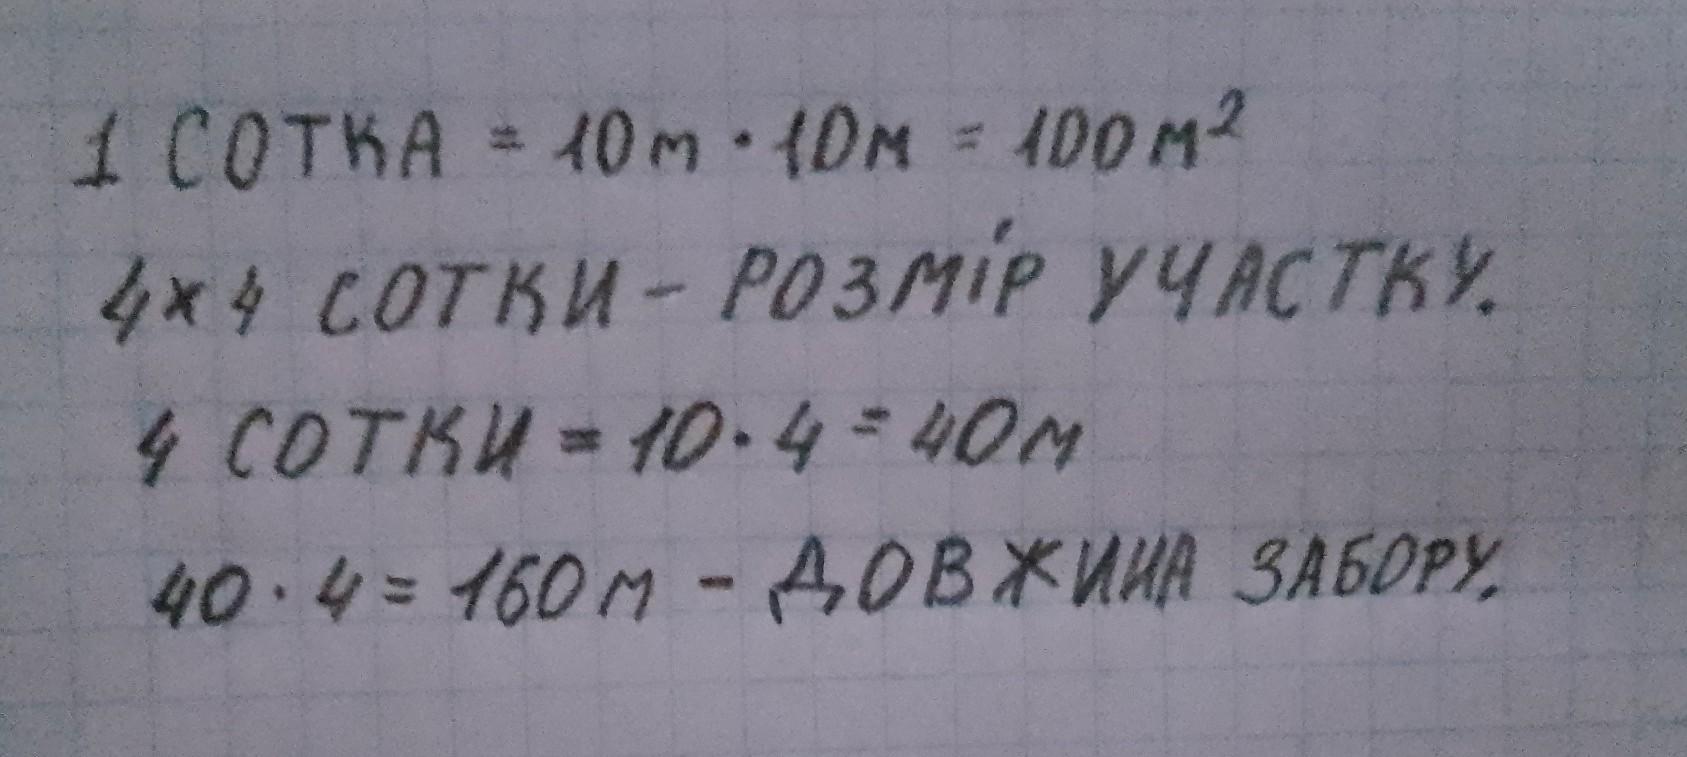 1 СОТКА = 10м · 10м = 100м²
4х4 СОТКИ - РОЗМІР УЧАСТКУ.
4 СОТКИ = 10·4 = 40м
40·4 = 160м - ДОВЖИНА ЗАБОРУ.